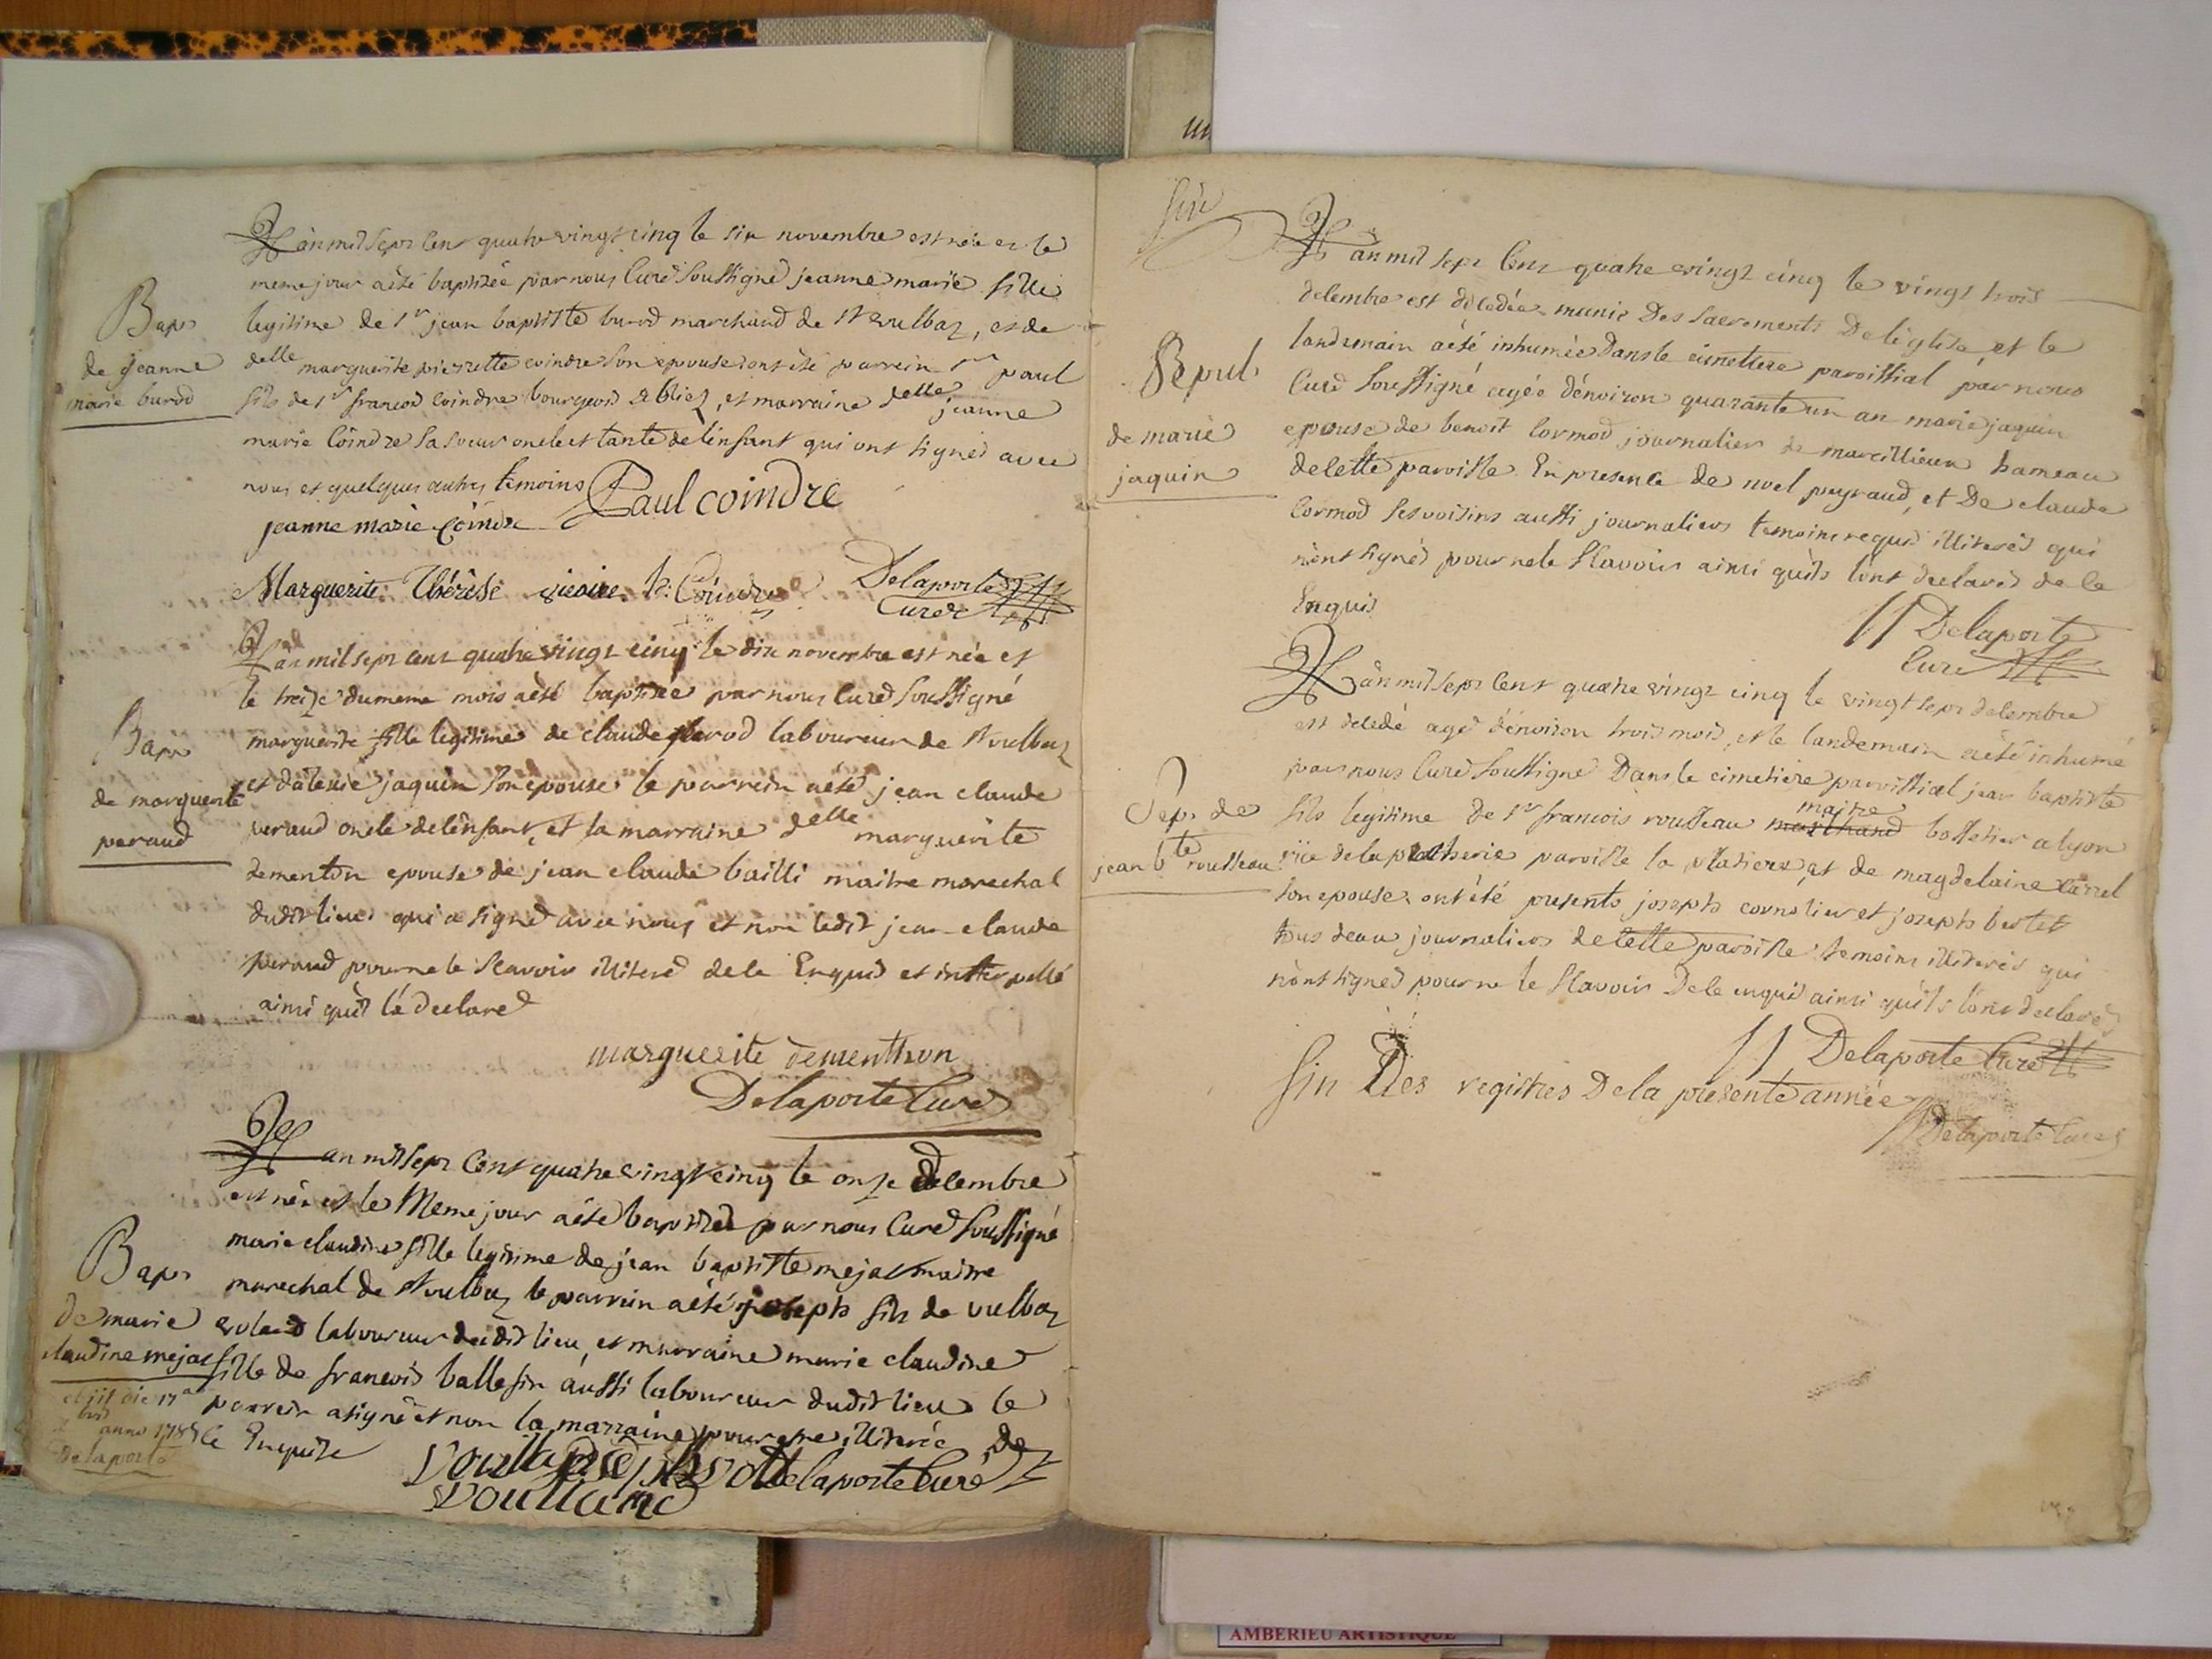 L'an mil sept cent quatre vingt cinq le six novembre est née et le
meme jour a été baptisée par nous Curé soussigné jeanne marie fille
legitime de sr jean baptiste burod marchand de st vulbaz, et de
delle marguerite pierrette coindre son epouse ont été parrein sr paul
fils de sr francois coindre bourgeois de bliez, et marraine delle jeanne
marie Coindre sa soeur oncle et tante de l'enfant qui ont signé avec
nous et quelques autres temoins
Bapt
de jeanne
marie burod
Paul coindre
jeanne marie Coindre
Marguerite Thérèse vicaire B. Coindre Delaporte
Curé
L'an mil sept cent quatre vingt cinq le dix novembre est née et
le treize du meme mois a été baptisée par nous Curé soussigné
marguerite fille legitime de claude perod laboureur de st vulbaz
et d'aterie jaquin son epouse le parrein a été jean claude
peraud oncle de l'enfant, et la marraine delle marguerite
dementon epouse de jean claude bailli maitre marechal
dudit lieu qui a signé avec nous et non ledit jean claude
peraud pour ne le scavoir illiteré de ce Enquis et interpellé
ainsi qu'il l'a declaré
Bapt
de marguerite
peraud
marguerite dementhon
Delaporte Curé
L'an mil sept Cent quatre vingt cinq le onze decembre
est née et le Meme jour a été baptisée par nous Curé soussigné
marie claudine fille legitime de jean baptiste mejat maitre
marechal de st vulbaz le parrein a été joseph fils de vulbaz
voland laboureur dudit lieu, et marraine marie claudine
fille de francois ballefin aussi laboureur dudit lieu le
parrein a signé et non la marraine pour etre illiterée de
ce Enquise
Bapt
de marie
claudine mejat
obiit die 17a
anno 1785
Delaporte
Delaporte Curé
voulland
fin
L'an mil sept Cent quatre vingt cinq le vingt trois
decembre est decedée munie Des sacrements De l'église, et le
landemain a été inhumée Dans le cimetiere paroissial par nous
Curé soussigné agée d'environ quarante un an marie jaquin
epouse de benoit Cormod journalier de marcillieux hameau
de cette paroisse En presence de noel peyraud, et De claude
Cormod ses voisins aussi journaliers temoins requis illiterés qui
n'ont signé pour ne le scavoir ainsi qu'ils l'ont declaré de ce
Enquis
Sepul
de marie
jaquin
Delaporte
Curé
L'an mil sept Cent quatre vingt cinq le vingt sept decembre
est decedé agé d'environ trois mois, et le landemain a été inhumé
par nous Curé soussigné Dans le cimetiere paroissial jean baptiste
fils legitime de sr francois rousseau marchand maitre bottetier a lyon
rüe de la platherie paroisse la platiere, et de magdelaine carrel
son epouse ont été presents joseph cornolier et joseph bertet
tous deux journaliers de cette paroisse temoins illiterés qui
n'ont signé pour ne le scavoir De ce enquis ainsi qu'ils l'ont declaré
Sep. de
jean bte rousseau
Delaporte Curé
fin Des registres De la presente année
Delaporte Curé
AMBERIEU ARTISTIQUE